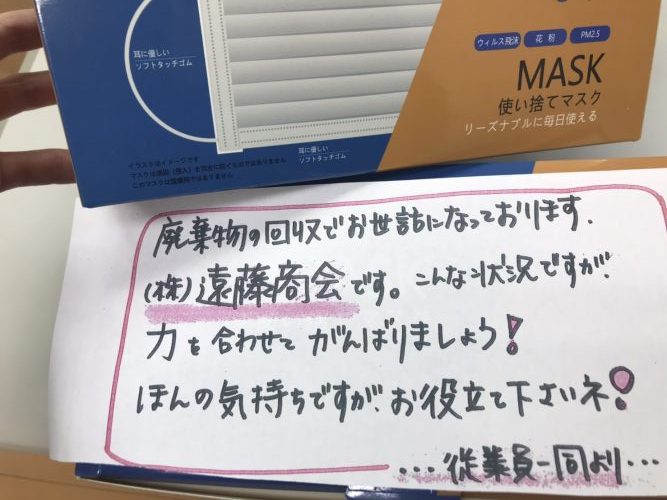 耳に優しい
ソフトタッチゴム
ウィルス飛沫 花粉 PM2.5
MASK
使い捨てマスク
リーズナブルに毎日使える
耳に優しい
ソフトタッチゴム
イラストはイメージです
マスクは感染(侵入)を完全に防ぐものではありません
このマスクは医療用ではありません
廃棄物の回収でお世話になっております.
(株)遠藤商会です。こんな状況ですが、
力を合わせてがんばりましょう!
ほんの気持ちですが、お役立て下さいネ!
…従業員一同より…